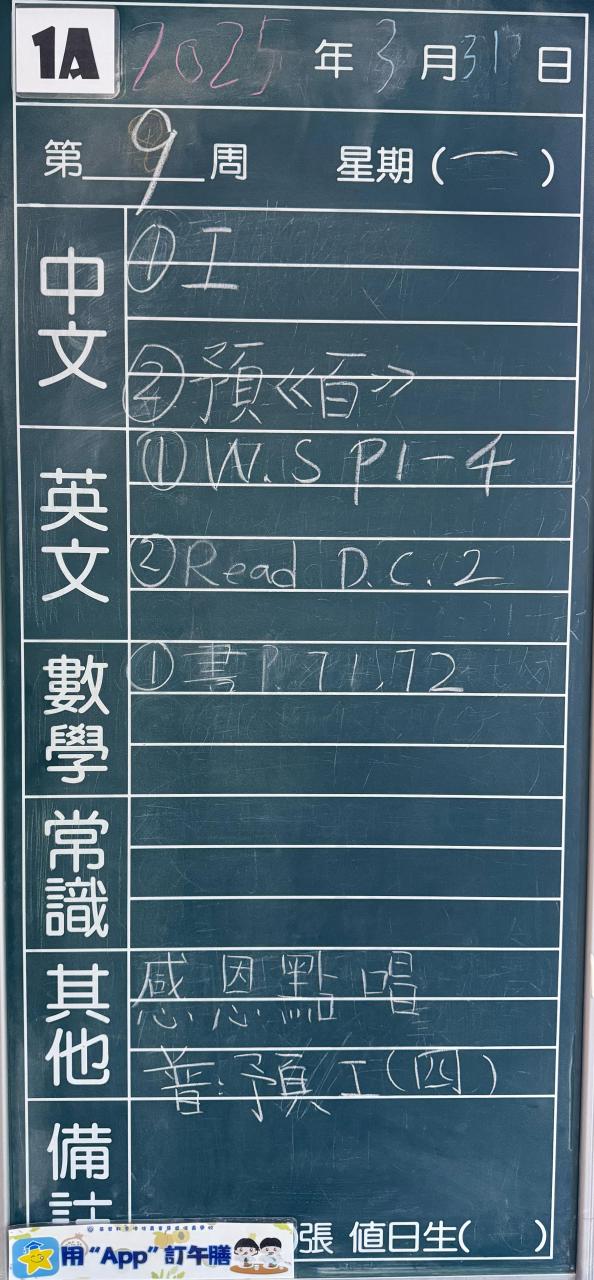 1A 2025 年 3 月 31 日
第 9 周 星期(一)
中文
① 工
② 預《百》
英文
① W.S P1-4
② Read D.C.2
數學
① 書 P.71,72
常識
其他
感恩點唱
普:預工(四)
備註
張 值日生( )
用“App”訂午膳